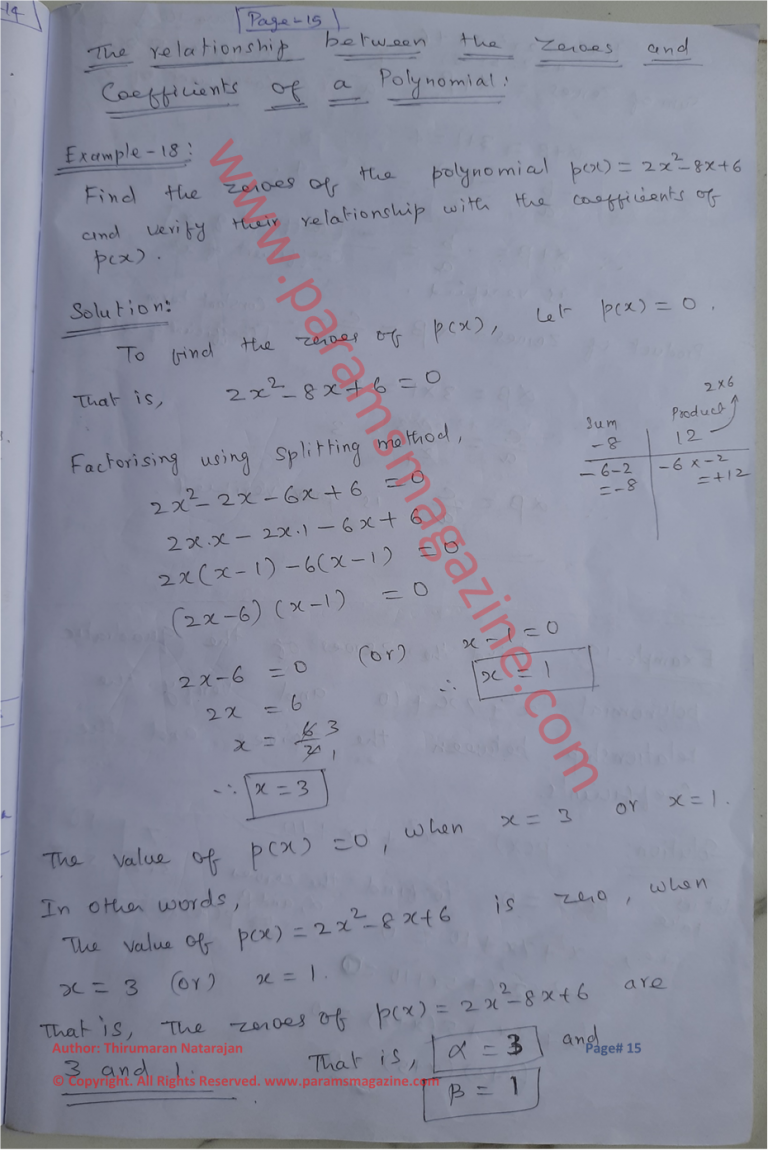 14
Page-15
The relationship between the zeroes and
Coefficients of a Polynomial:
Example-18:
Find the zeroes of the polynomial p(x) = 2x²-8x+6
and verify their relationship with the coefficients of
p(x).
Solution:
To find the zeroes of p(x), Let p(x) = 0.
That is, 2x²-8x+6 = 0
2×6
Sum Product
-8 12
-6-2 -6 × -2
=-8 =+12
Factorising using Splitting method,
2x²-2x-6x+6 = 0
2x.x - 2x.1 - 6x + 6
2x(x-1)-6(x-1) = 0
(2x-6)(x-1) = 0
2x-6 = 0 (or) x-1 = 0
2x = 6 ∴ x = 1
x = 6/2 3 1
∴ x = 3
The value of p(x) = 0, when x = 3 or x = 1.
In other words,
The value of p(x) = 2x²-8x+6 is zero, when
x = 3 (or) x = 1.
That is, The zeroes of p(x) = 2x²-8x+6 are
3 and 1. That is, α = 3 and
β = 1
www.paramsmagazine.com
Author: Thirumaran Natarajan Page# 15
© Copyright. All Rights Reserved. www.paramsmagazine.com